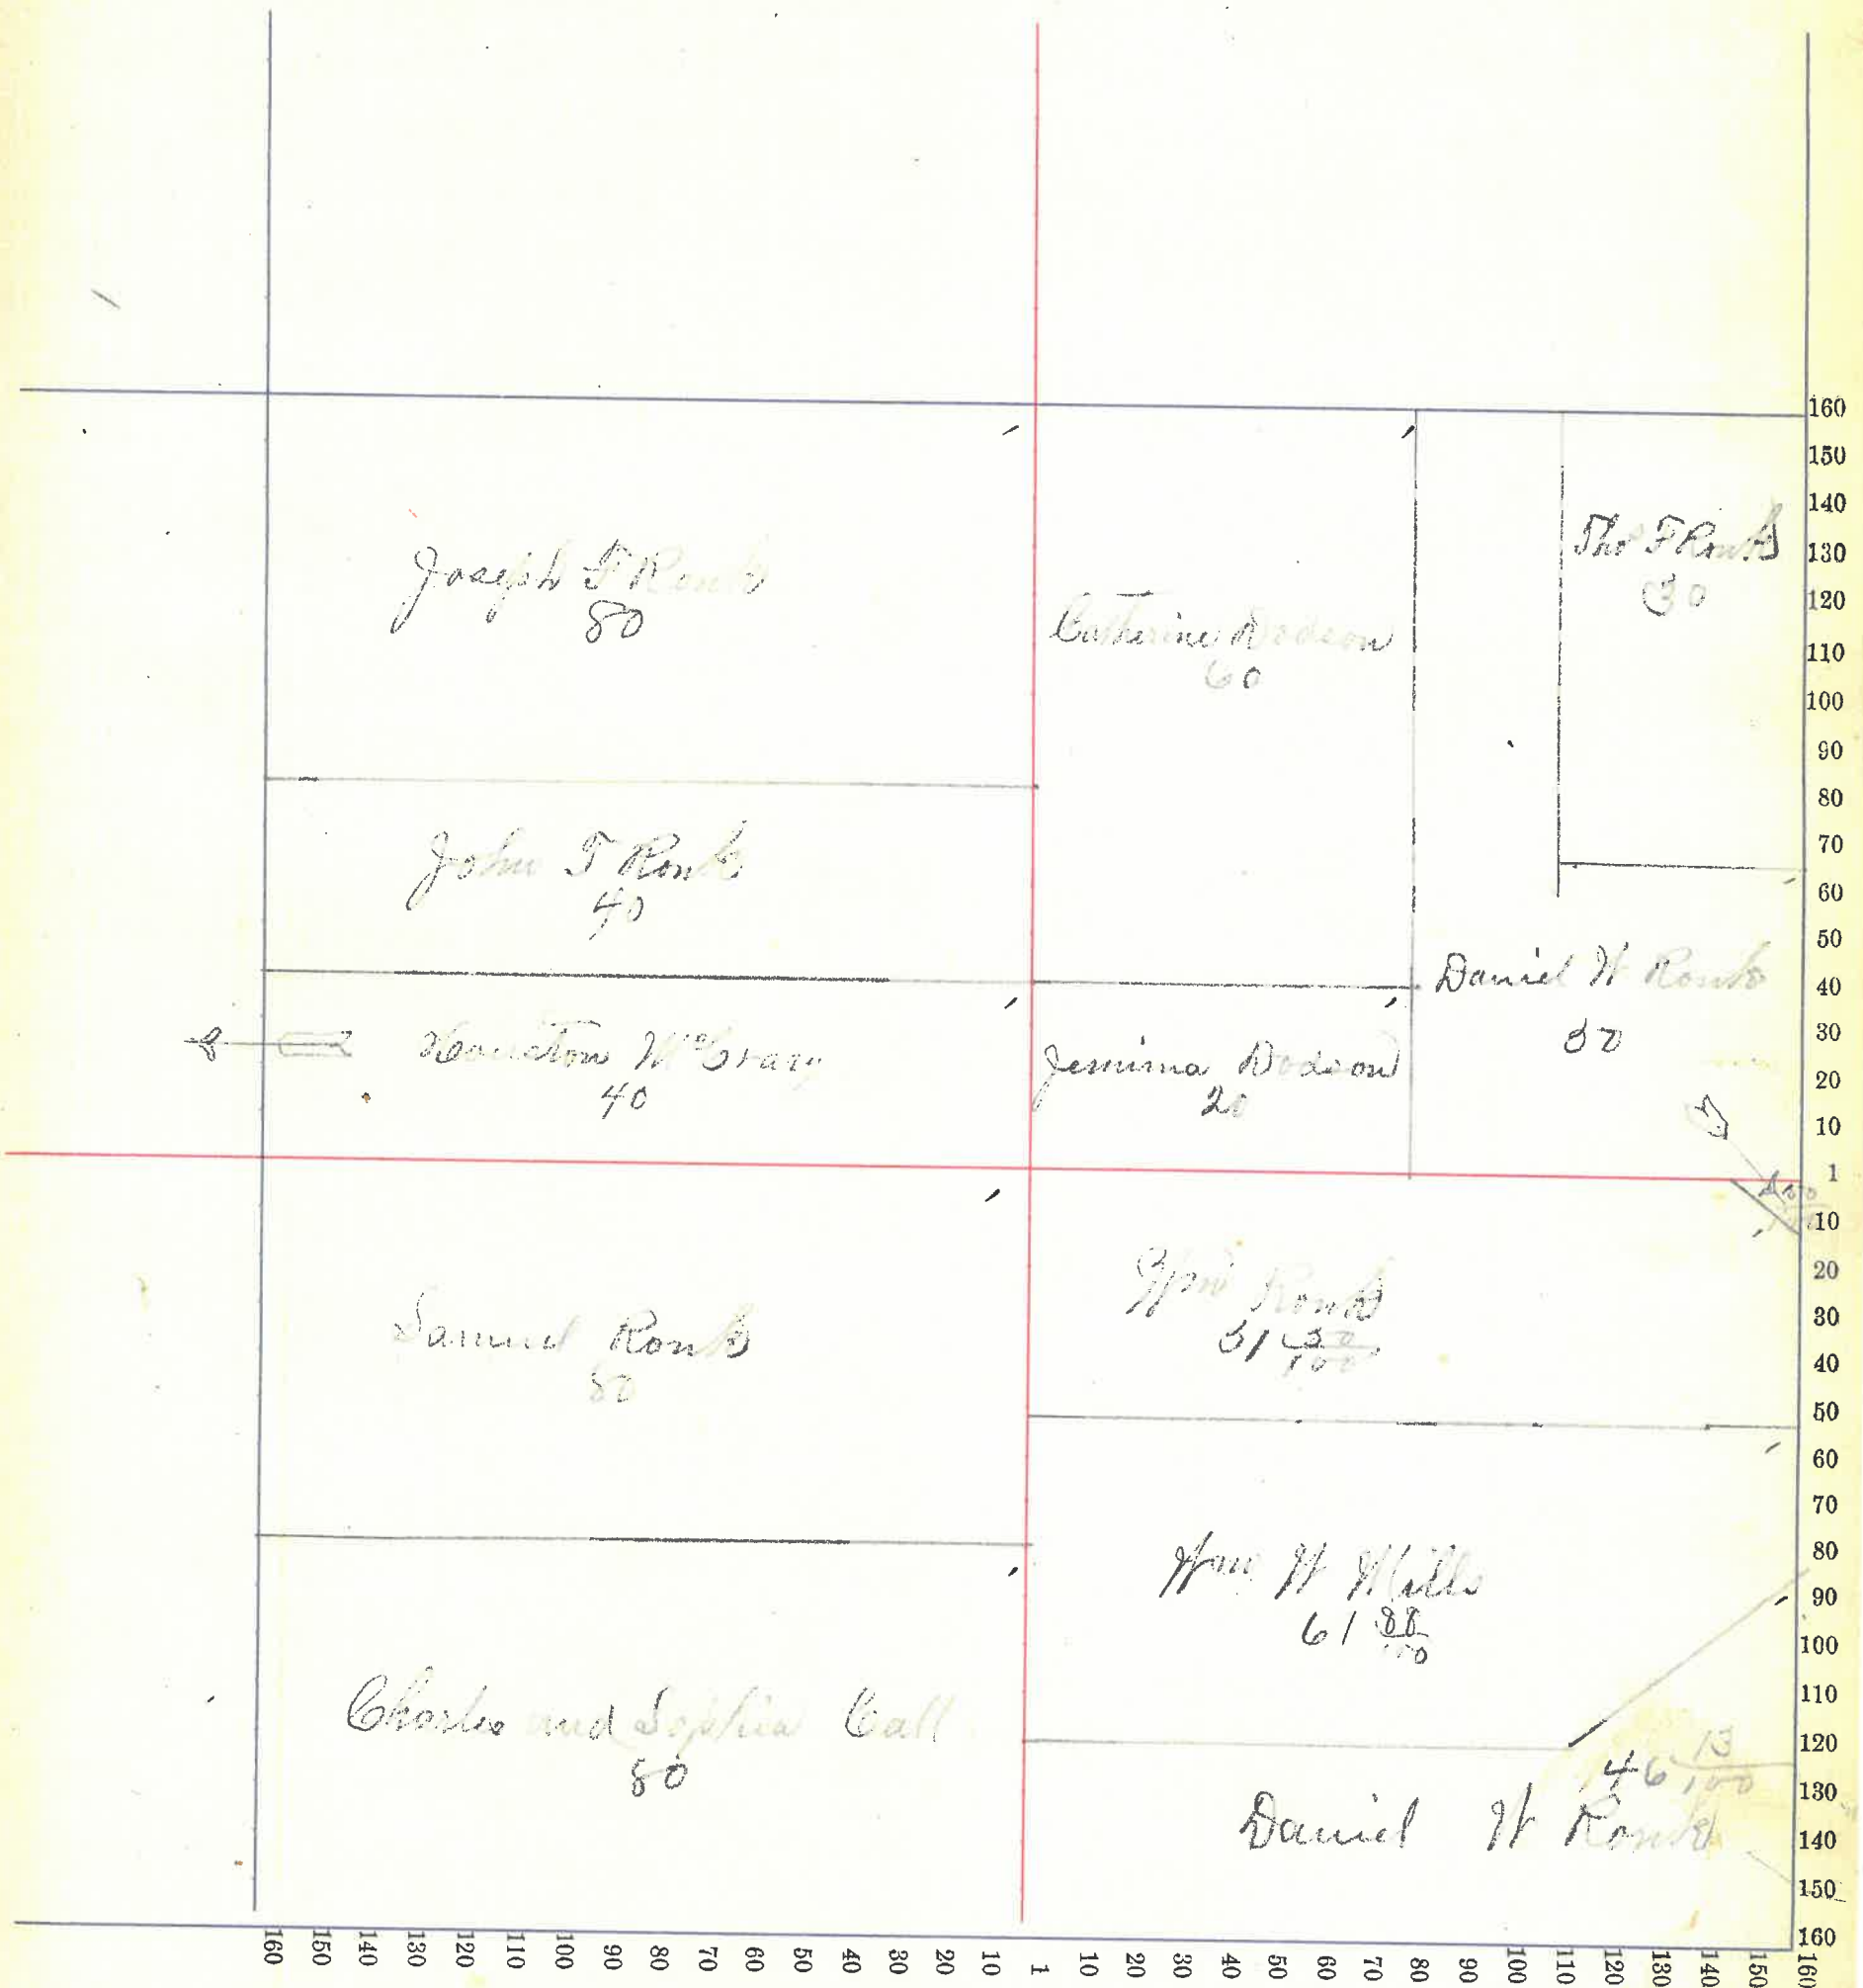 Joseph F Ronk
80
John F Ronk
40
Houston
40
Catherine Dodson
60
Jemima Dodson
20
Tho F Ronk
30
Daniel W Ronk
Samuel Ronk
80
Wm Ronk
51 50/100
Wm W Mills
61 88/100
Charles and Sophia Call
80
46 13/100
Daniel W Ronk
160
150
140
130
120
110
100
90
80
70
60
50
40
30
20
10
1
10
20
30
40
50
60
70
80
90
100
110
120
130
140
150
160
160 150 140 130 120 110 100 90 80 70 60 50 40 30 20 10 1 10 20 30 40 50 60 70 80 90 100 110 120 130 140 150 160